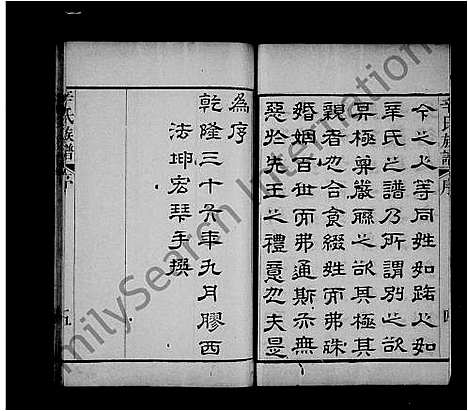 今之人等同姓如路人如
辛氏之譜乃所謂別之欲
其極嚴聯之欲其極其
親者也合食綴姓而弗殊
婚姻百世而弗通斯亦無
惡於先王之禮意也夫是
為序
乾隆三十年九月膠西
法坤宏琴手撰
辛氏族譜
序
辛氏族譜
序
五
FamilySearch International